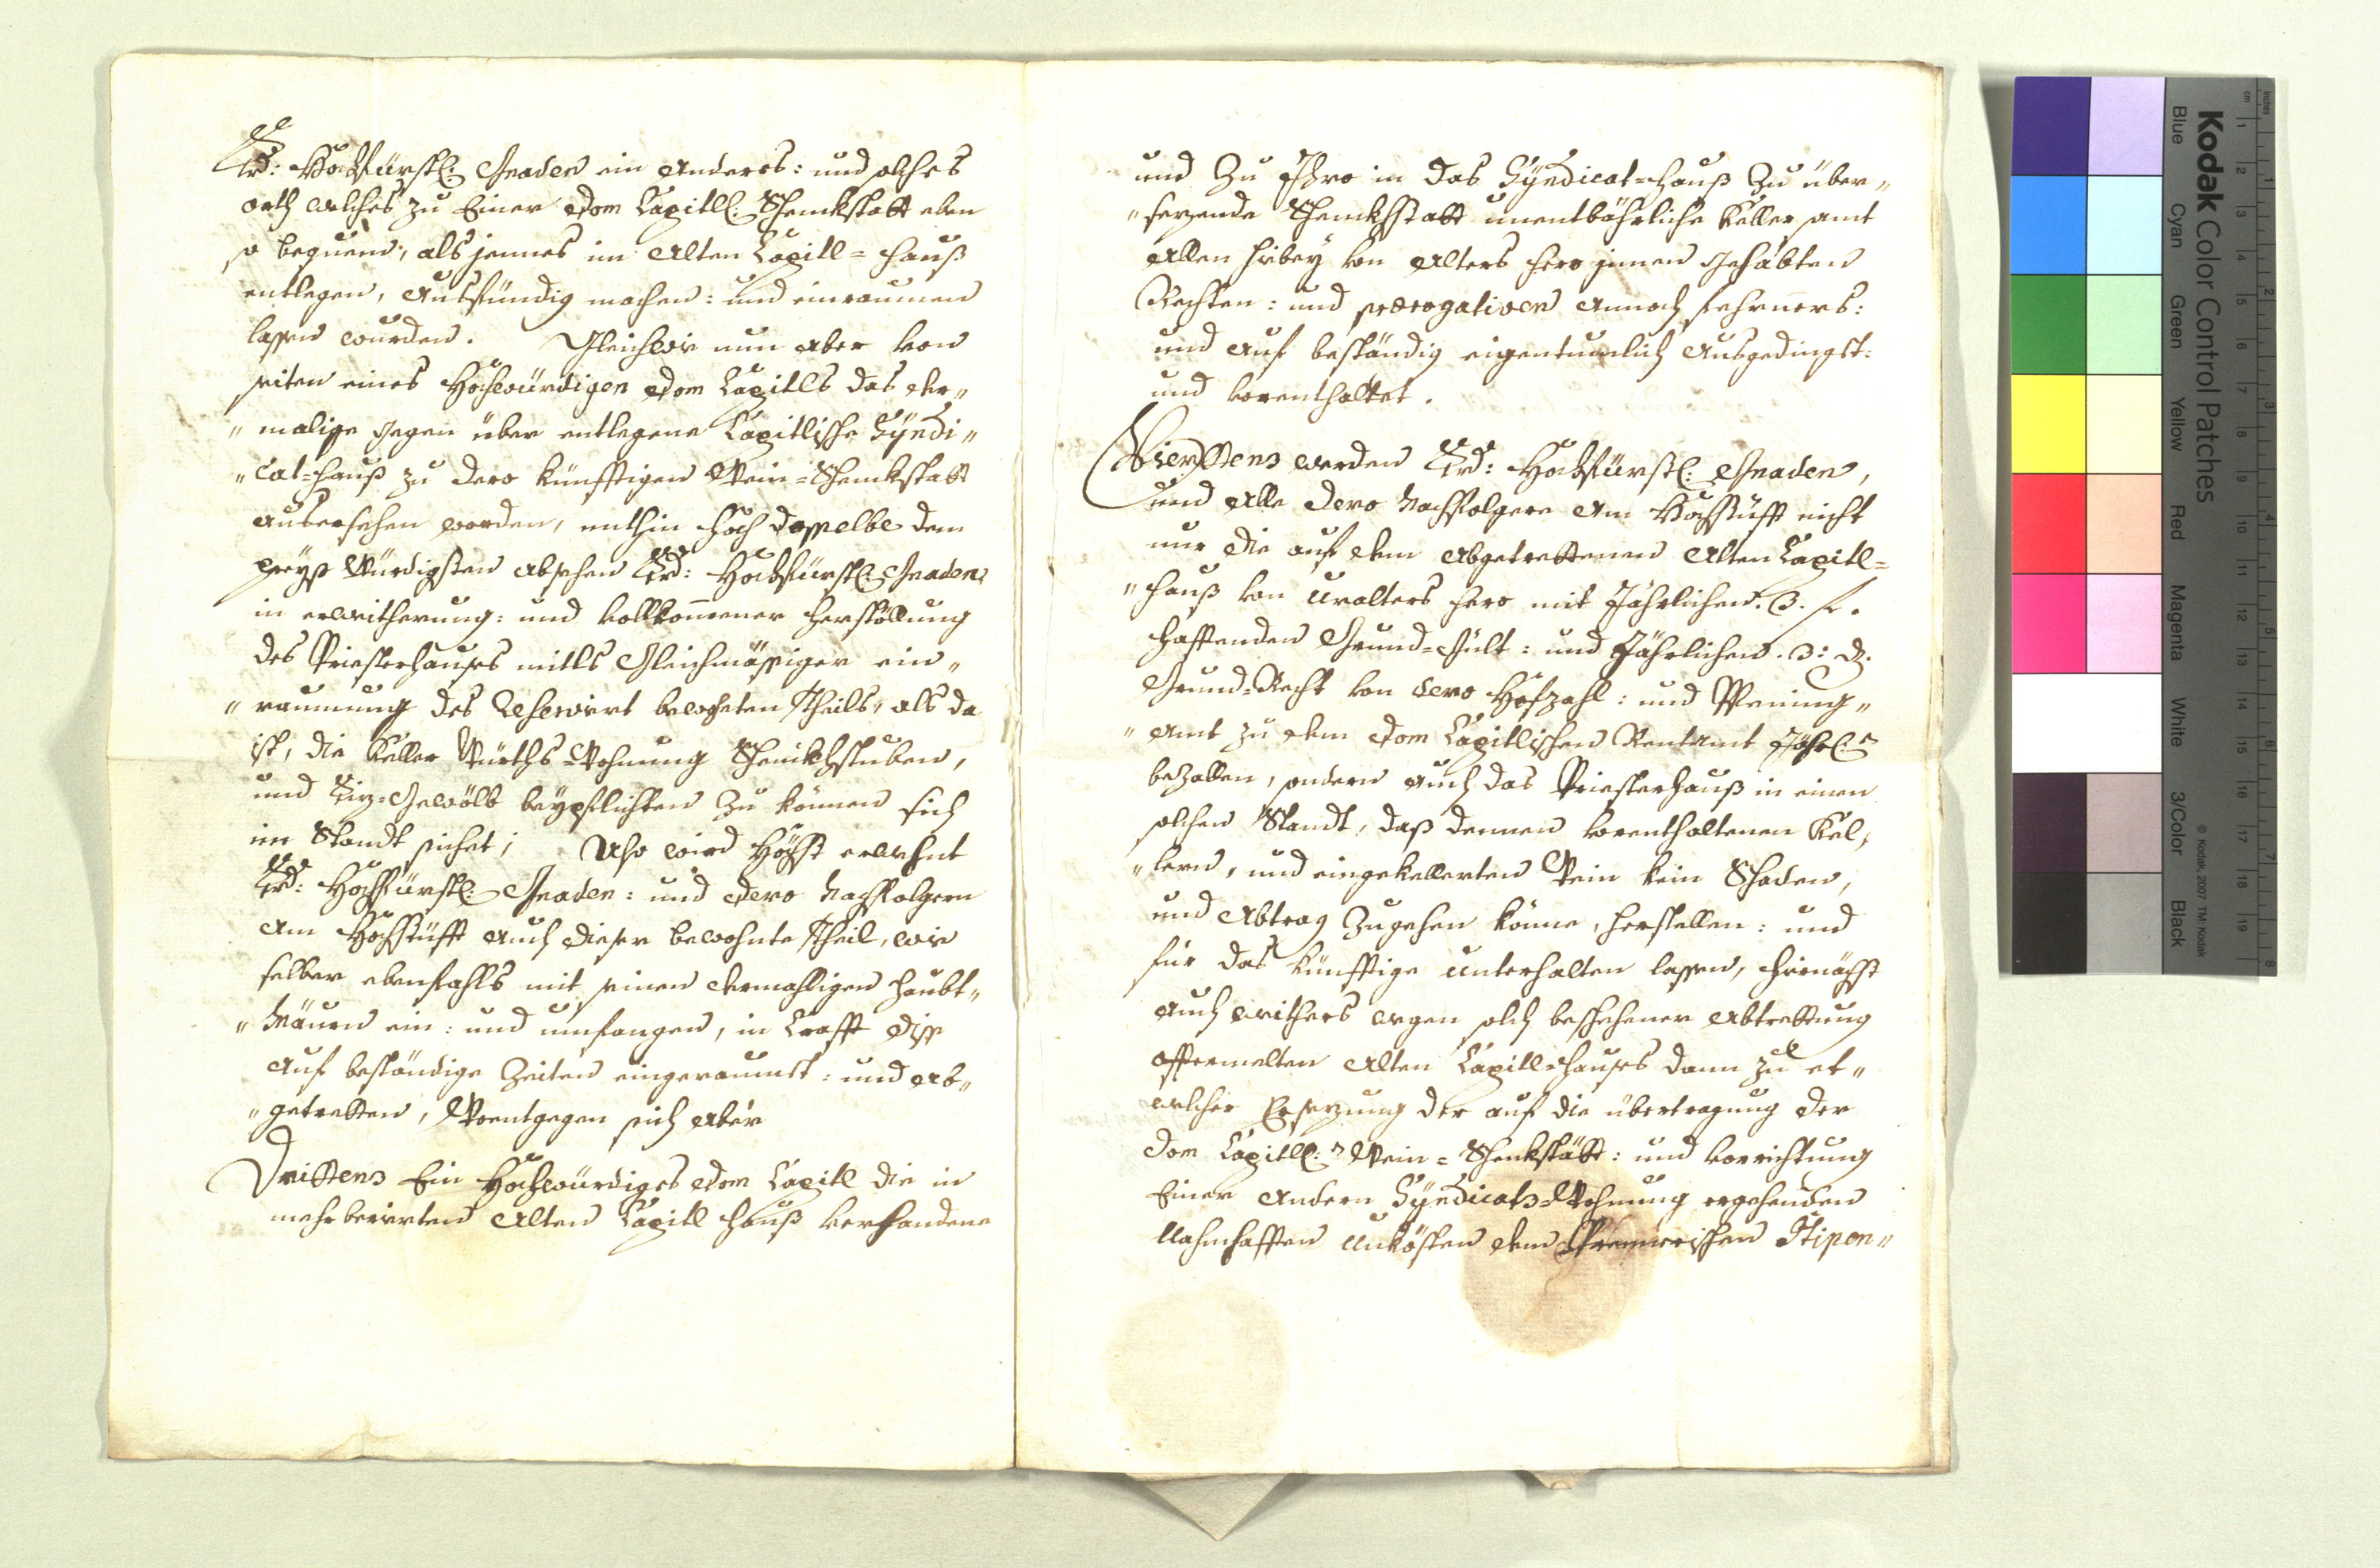 Ihro: Hochfürstl: Gnaden ein anderes: und solches
orth welches zu Einer Dom Capitll: Schenckstatt eben
so bequem, als jennes im Alten Capitll=hauß
entlegen, ausfündig machen: und einraumen
lassen wurden. Gleichwie nun aber von
seiten eines Hochwürdigen Dom Capitls das der„
„malige gegen über entlegene Capitlische Syndi„
„cat=hauß zu dero künfftigen Wein=Schenckstatt
ausersehen worden, mithin hoch dasselbe dem
preyß würdigsten absehen Ihro: Hochfürstl: Gnaden,
in erweitherung: und vollkom̅ener herstöllung
des Priesterhauses mitls Gleichmässiger ein„
„raumung des bewohnten Theils, als da
ist, die Keller Würths=Wohnung Schenckhstuben,
und Gewölb beypflichten zu können sich
im Standt sichet; Also wird Höchst erwehnt
Ihro: Hochfürstl: Gnaden: und dero Nachfolgern
am Hochstüfft auch dieser bewohnte Theil, wie
selber ebenfahls mit seinen dermahligen haubt„
„Mäuren ein: und umfangen, in Crafft diss
auf beständige Zeiten eingeraumbt: und ab„
„getretten, Woentgegen sich aber
Drittens Ein Hochwürdiges Dom Capitl die in
mehr berierten Alten Capitl hauß verhandene
und zu Ihro in das Syndicat=hauß zu über„
„sezende Schenckhstatt unentböhrliche Keller samt
allen hirbey von Alters hero jnnen gehabten
Rechten: und prærogativen annoch fehrners:
und auf beständig eigentumlich ausgedingt:
und vorenthaltet.
Viertens werden Ihro: Hochfürstl: Gnaden,
und alle dero Nachfolgere am Hochstüfft nicht
nur die auf dem abgetrettenen Alten Capitl=
„hauß von uralters hero mit Jährlichen. 3. f.
hafftenden Grund=Gült: und Jährlichen. 3: d.
Grund=Recht von dero Hofzahl: und Pfening„
„Amt zu dem Dom Capitlischen Rentamt Jährl:
bezallen, sondern auch das Priesterhauß in einen
solchen Standt, daß dennen vorenthaltenen Kel„
„lern, und eingekellerten Wein kein Schaden,
und Abtrag zugehen könne, herstellen: und
für das künfftige unterhalten lassen, hirnächst
auch weithers wegen solch beschehener Abtrettung
offtermelten Alten Capitll=hauses dann zu et„
welcher Ersezung der auf die übertragung der
Dom Capitll: Wein=Schenkstätt: und vorrichtung
Einer andern Syndicats=Wohnung ergehenden
Nahmhafften Unkösten dem Stipen„
Kodak Color Control Patches
Blue Cyan Green Yellow Red Magenta White 3/Color Black
© Kodak, 2007 TM: Kodak
cm 1 2 3 4 5 6 7 8 9 10 11 12 13 14 15 16 17 18 19
inches 1 2 3 4 5 6 7 8